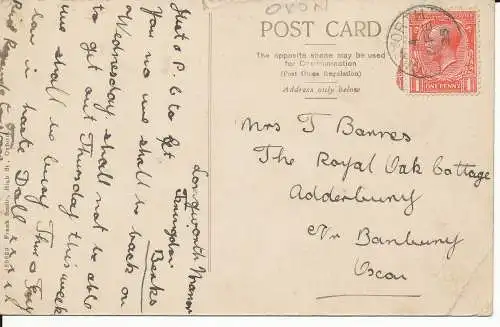 OXON
POST CARD
The opposite space may be used
for Communication
(Post Office Regulation)
Address only below
ONE PENNY
Mrs T Barres
The Royal Oak Cottage
Adderbury
Nr Banbury
Oxon
Longworth Manor
Faringdon
Berks
Just a P.C to let
you no we shall be back on
Wednesday shall not be able
to get out Thursday this week
we shall be busy Thurs & Fry
low in haste Doll